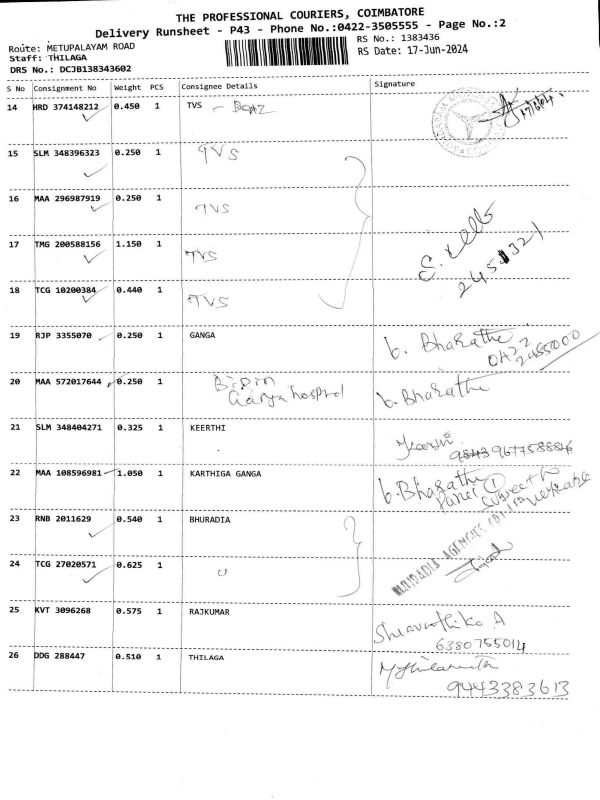 THE PROFESSIONAL COURIERS, COIMBATORE
Delivery Runsheet - P43 - Phone No.:0422-3505555 - Page No.:2
Route: METUPALAYAM ROAD
RS No.: 1383436
Staff: THILAGA
RS Date: 17-Jun-2024
DRS No.: DCJB138343602
S No Consignment No Weight PCS Consignee Details Signature
14 HRD 374148212 0.450 1 TVS
15 SLM 348396323 0.250 1 TVS
16 MAA 296987919 0.250 1 TVS
17 TMG 200588156 1.150 1 TVS
18 TCG 10200384 0.440 1 TVS
19 RJP 3355070 0.250 1 GANGA b. Bharathi
20 MAA 572017644 0.250 1 b. Bharathi
21 SLM 348404271 0.325 1 KEERTHI
22 MAA 108596981 1.050 1 KARTHIGA GANGA b. Bharathi
23 RNB 2011629 0.540 1 BHURADIA
24 TCG 27020571 0.625 1
25 KVT 3096268 0.575 1 RAJKUMAR
6380755014
26 DDG 288447 0.510 1 THILAGA
9443383613